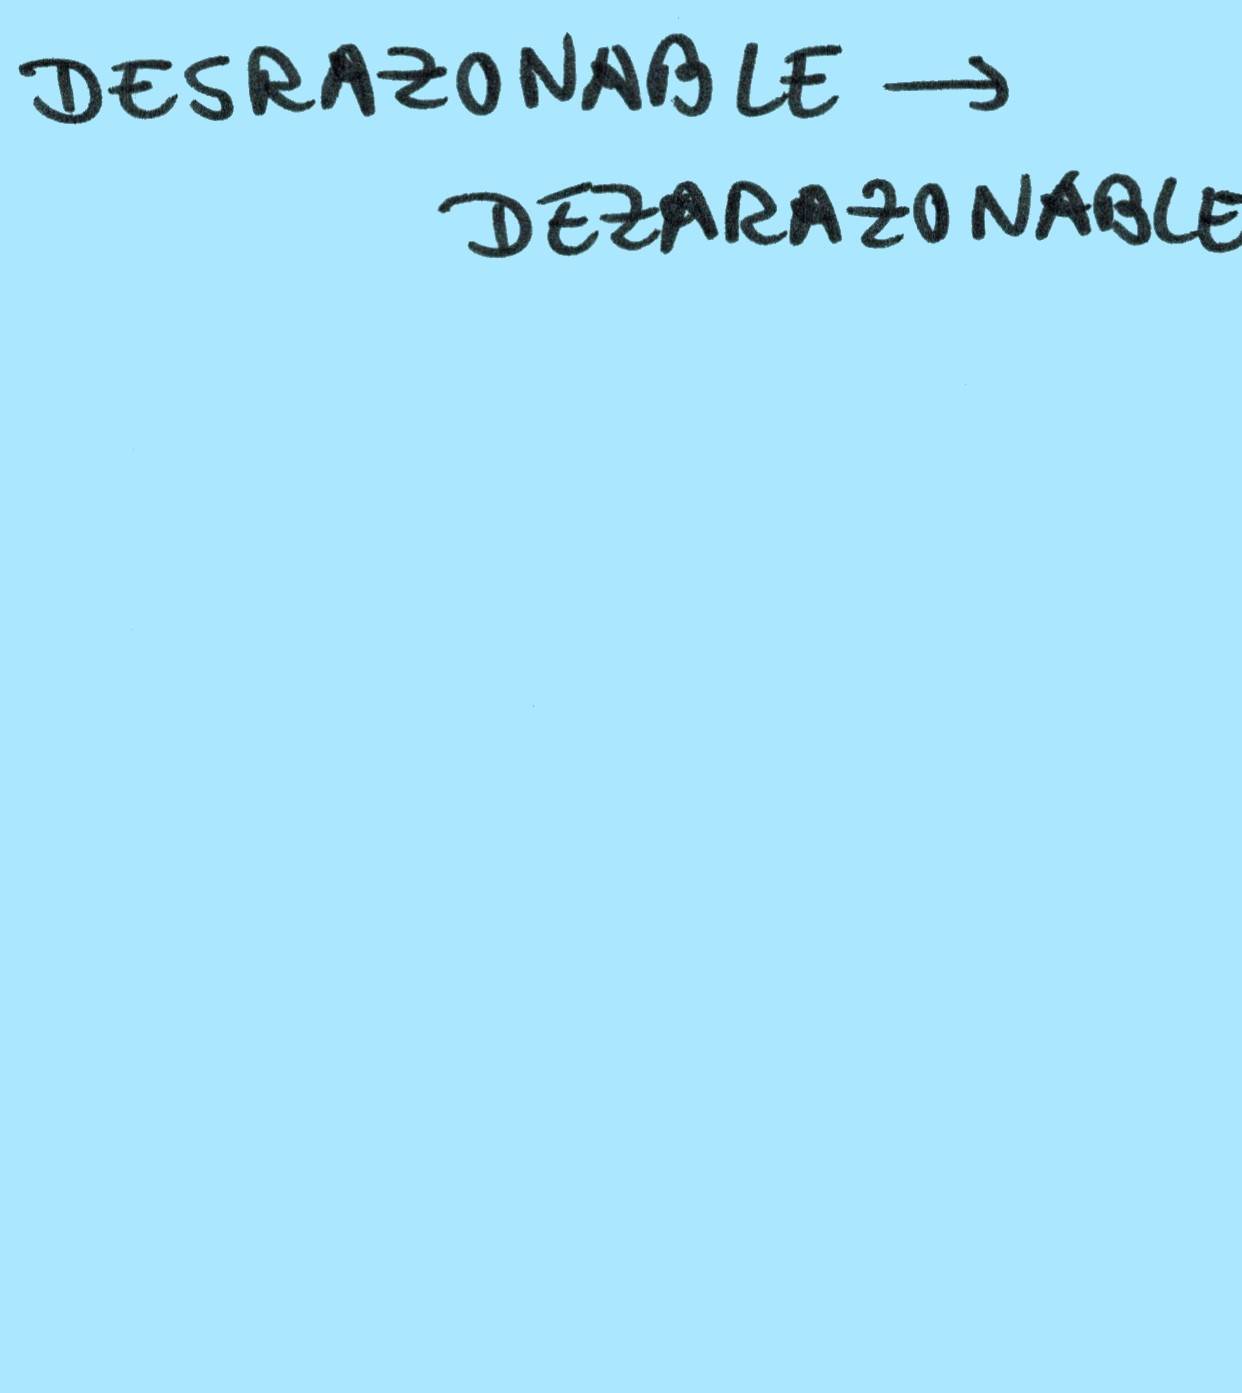 DESRAZONABLE →
DEZARAZONABLE